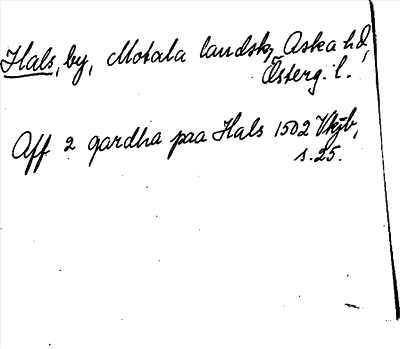 Hals, by, Motala landsk, Aska hd,
Österg. l.
Aff 2 gardha paa Hals 1502 Vkjb,
s. 25.